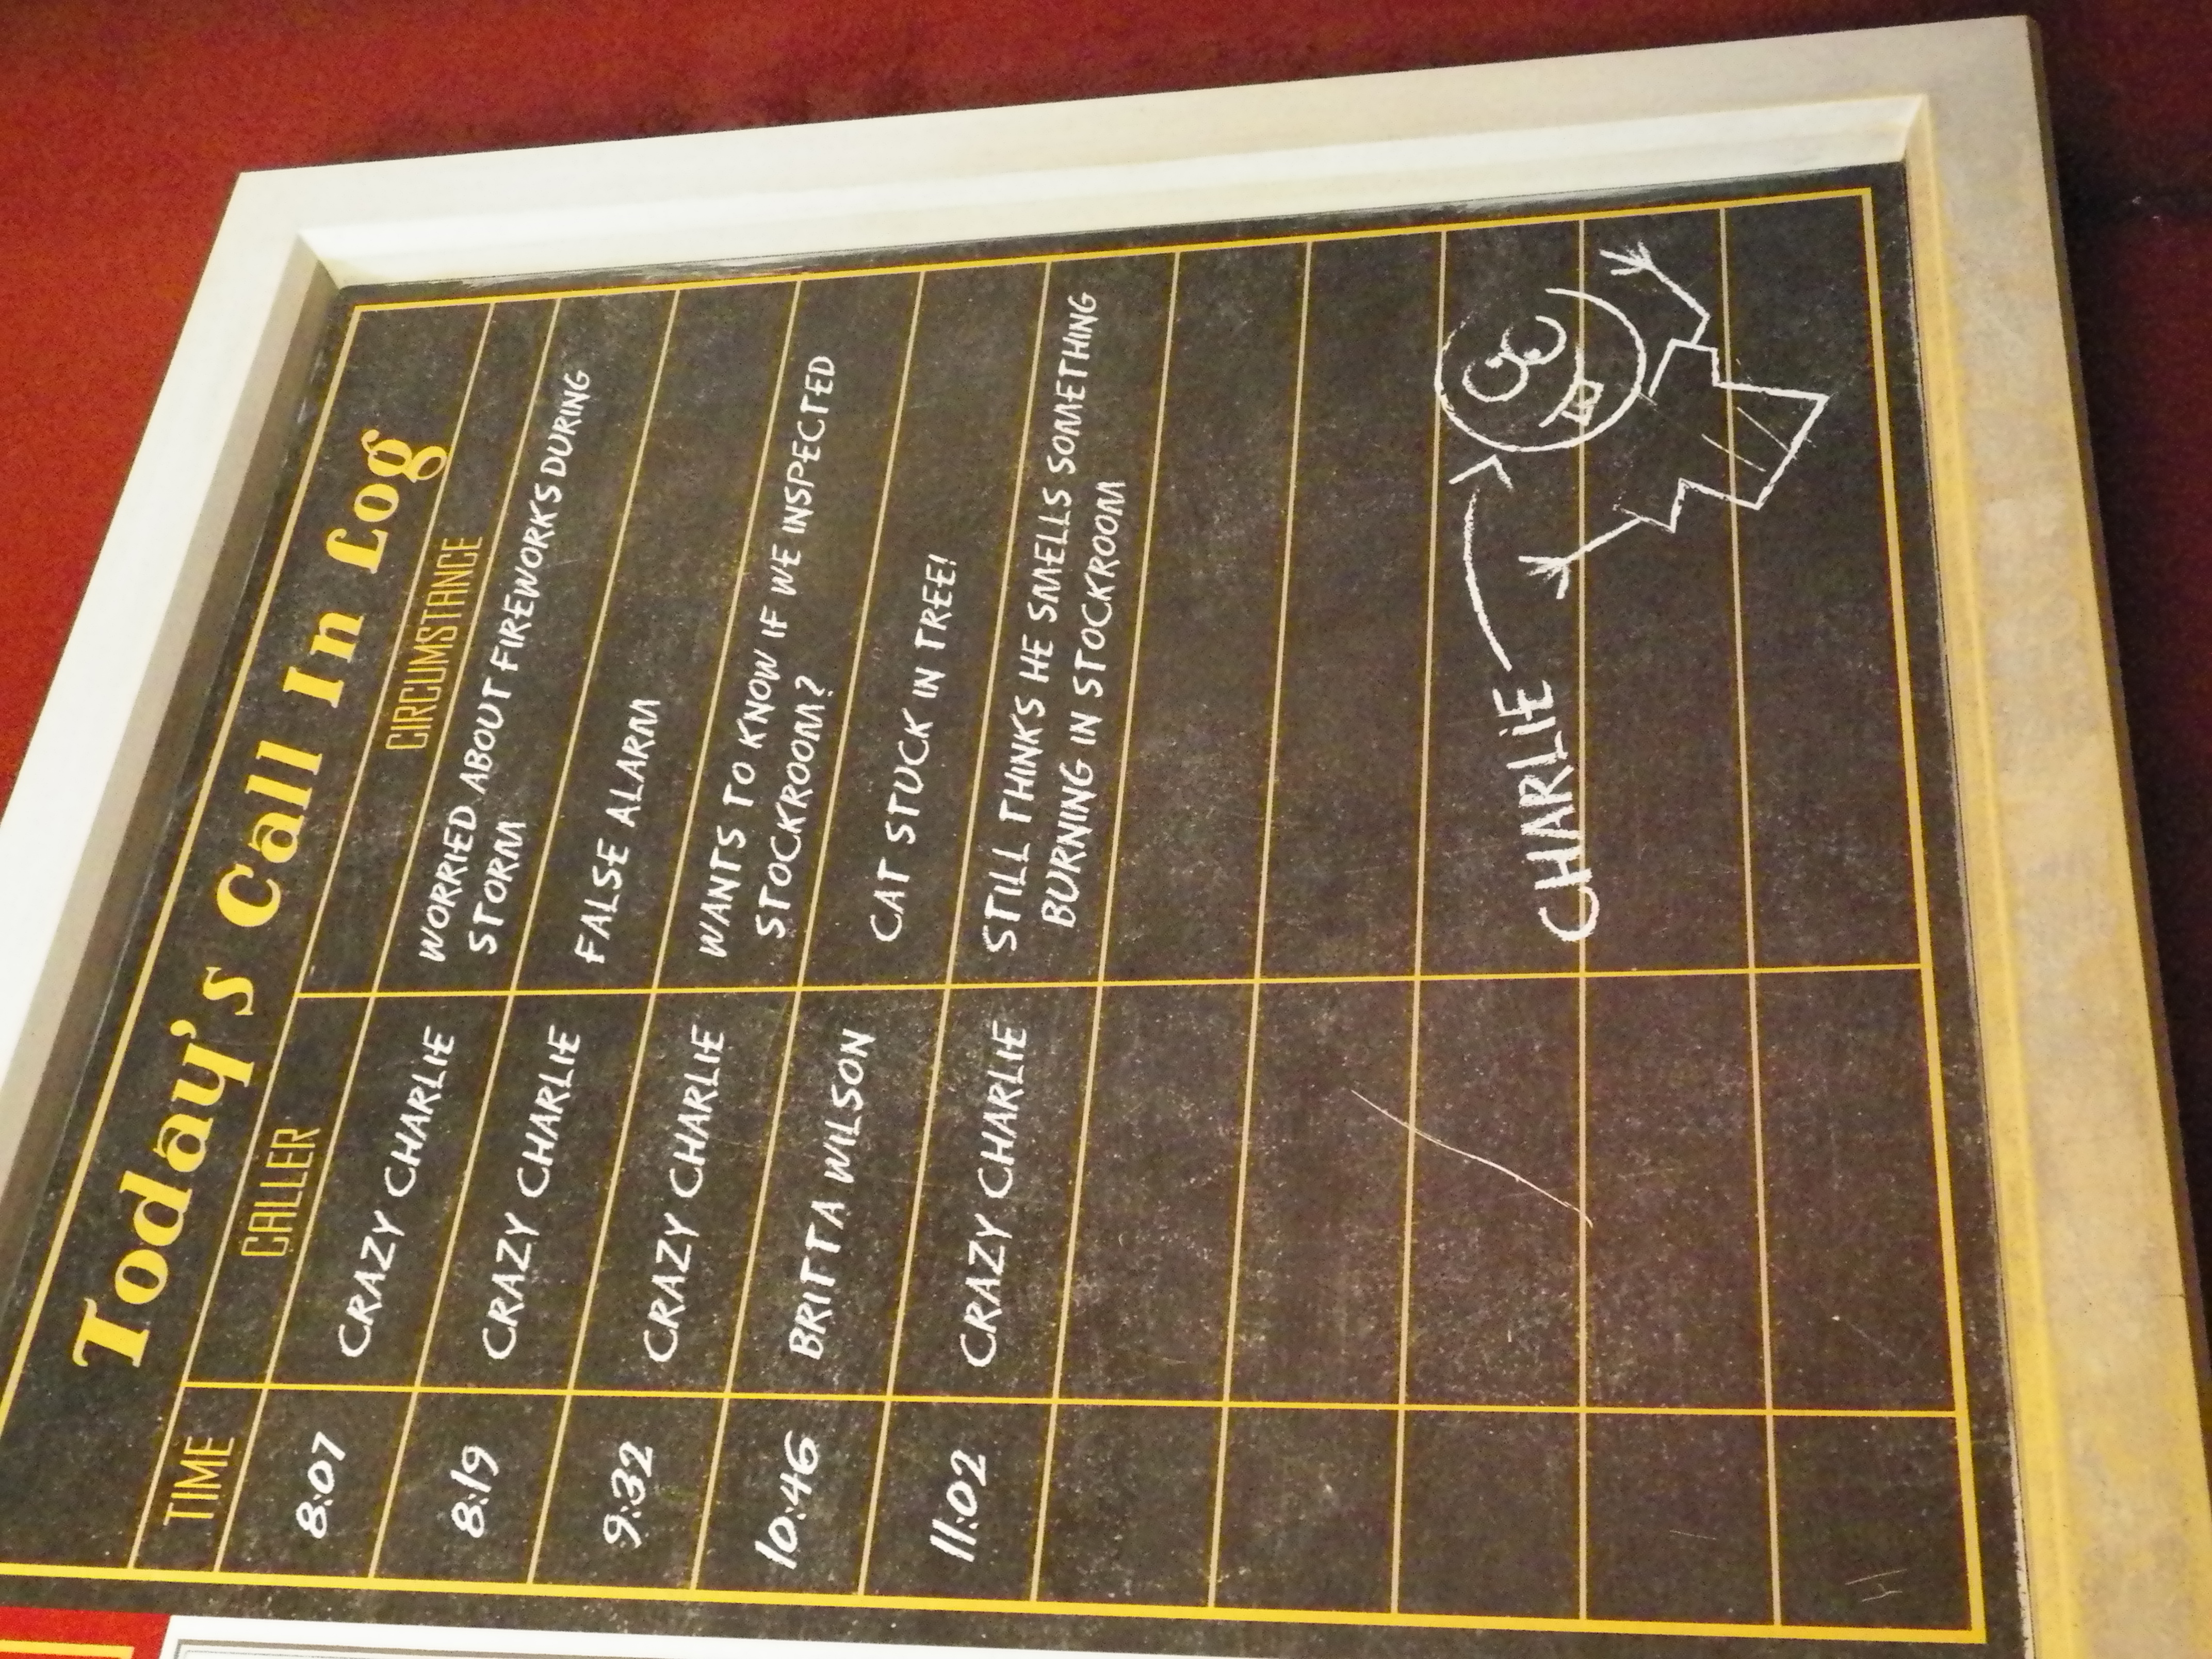 Today's Call In Log
TIME CALLER CIRCUMSTANCE
8:07 CRAZY CHARLIE WORRIED ABOUT FIREWORKS DURING
STORM
8:19 CRAZY CHARLIE FALSE ALARM
9:32 CRAZY CHARLIE WANTS TO KNOW IF WE INSPECTED
STOCKROOM?
10:46 BRITTA WILSON CAT STUCK IN TREE!
11:02 CRAZY CHARLIE STILL THINKS HE SMELLS SOMETHING
BURNING IN STOCKROOM
CHARLIE